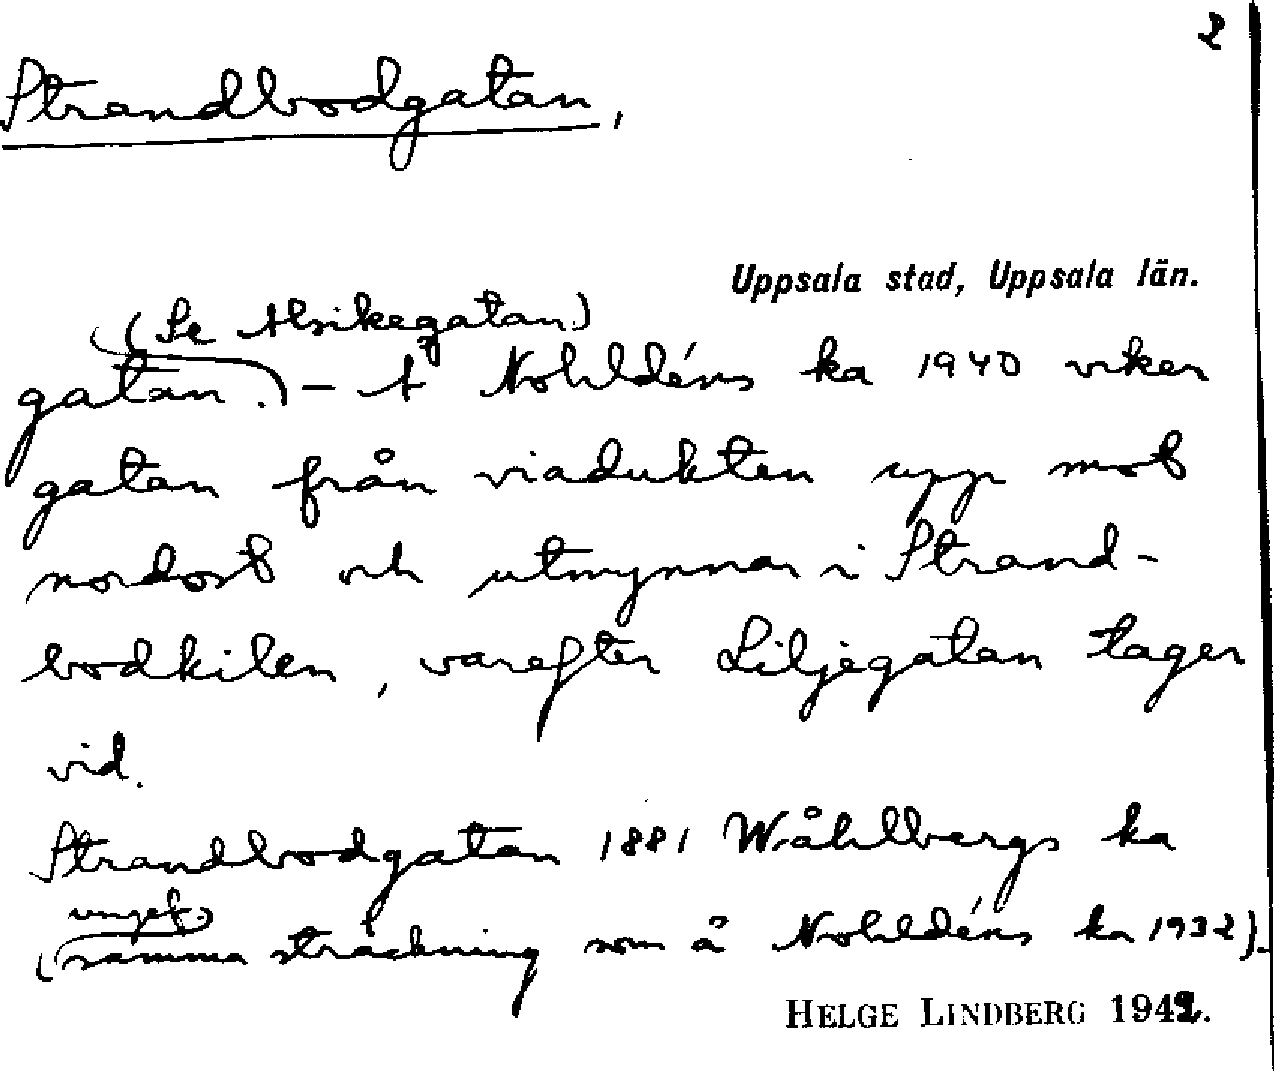 2
Strandbodgatan,
Uppsala stad, Uppsala län.
(Se Alsikegatan.)
gatan.) – Å Nohldéns ka 1940 viker
gatan från viadukten upp mot
nordost och utmynnar i Strand-
bodkilen, varefter Liljegatan tager
vid.
Strandbodgatan 1881 Wåhlbergs ka
ungef.
(samma sträckning som å Nohldéns ka 1932).
HELGE LINDBERG 1942.